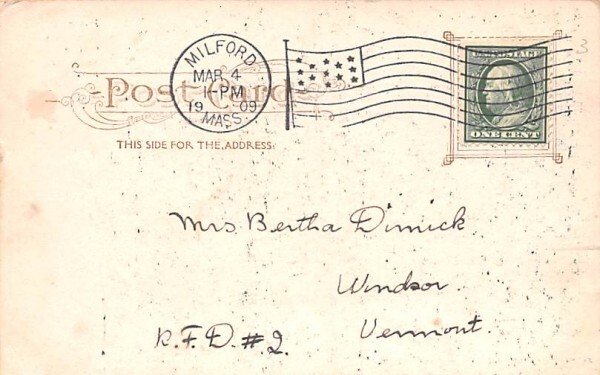 MILFORD
MAR 4
1-PM
1909
MASS.
Post Card
THIS SIDE FOR THE ADDRESS.
U.S. POSTAGE
ONE CENT
3
Mrs Bertha Dimick
Windsor
Vermont
R.F.D. #2.